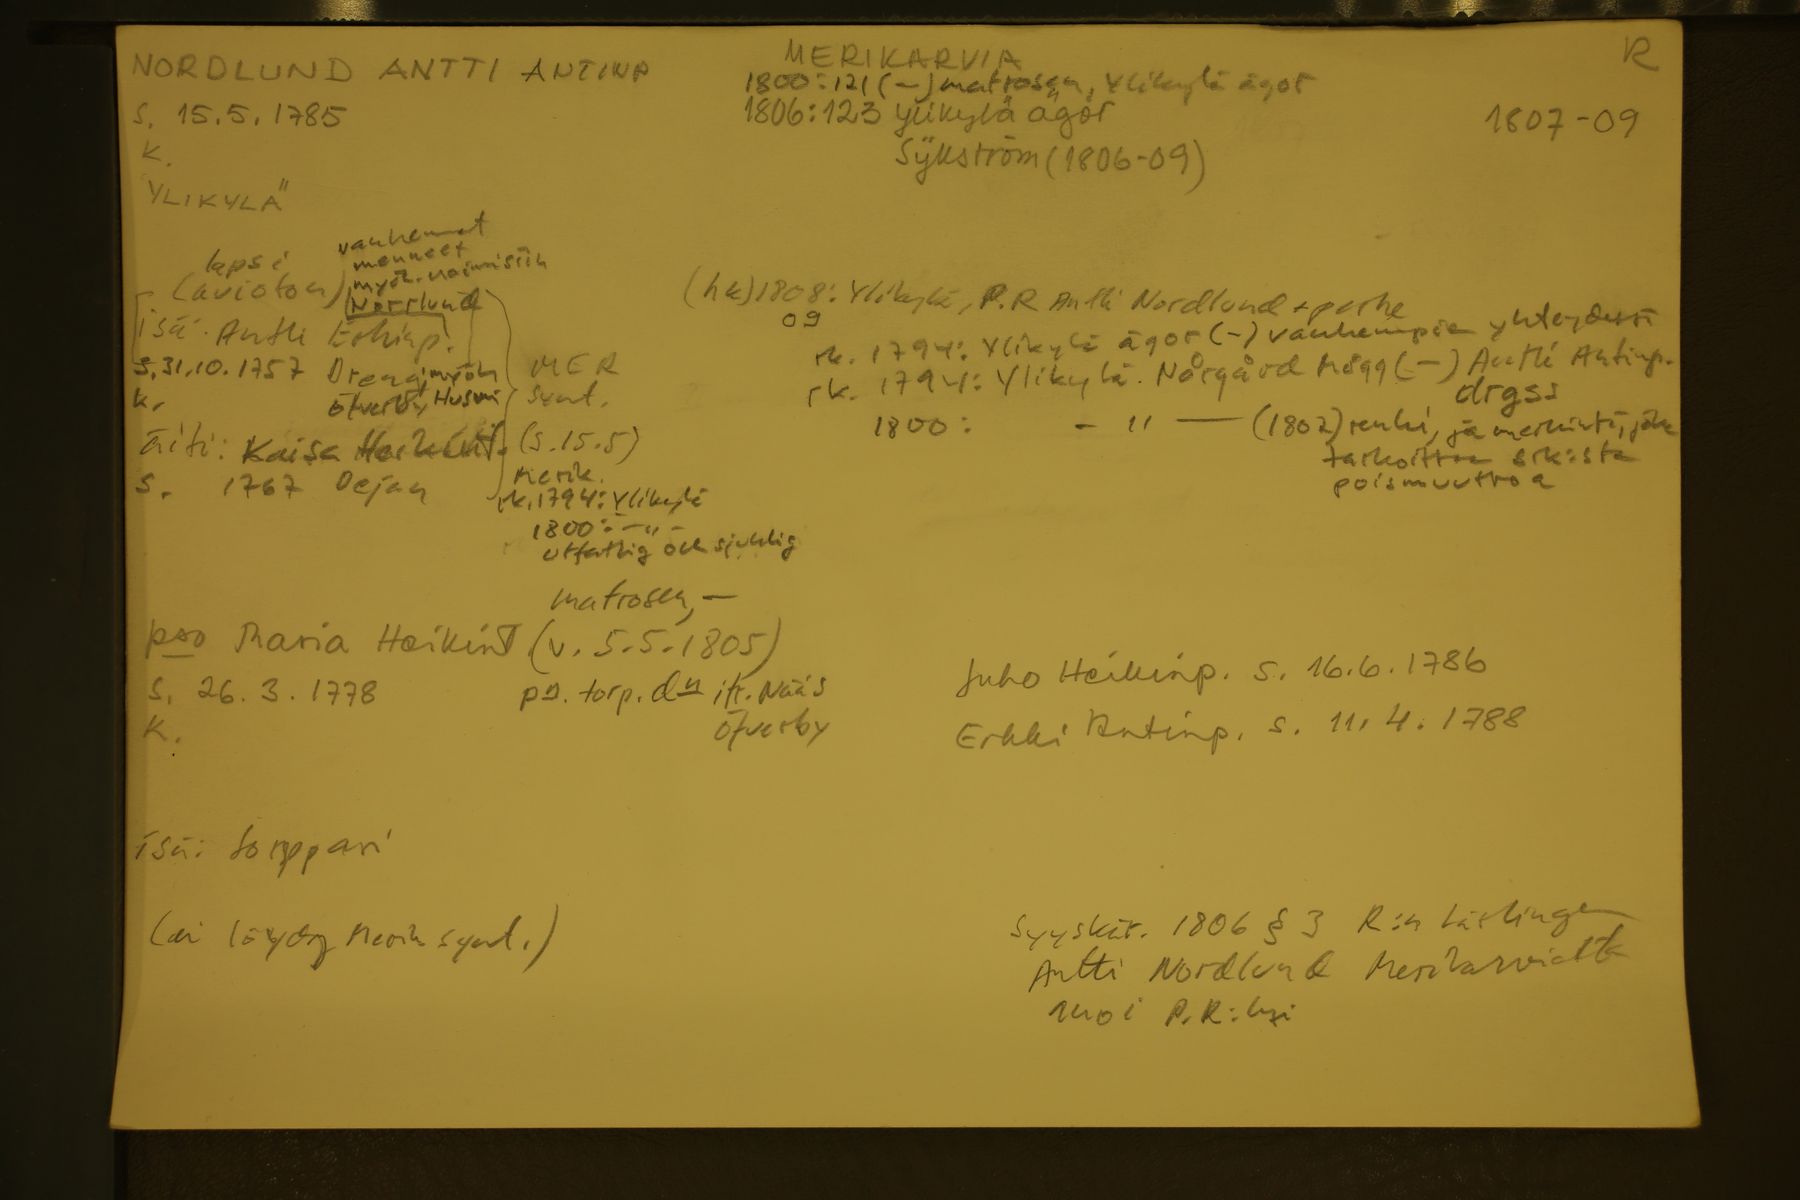 NORDLUND ANTTI ANTINP
MERIKARVIA
R
1800:121 (—) matrosen, Ylikylä ägor
s. 15.5. 1785
1806:123 Ylikylä ägor
1807-09
k.
Sykström (1806-09)
"YLIKYLÄ"
lapsi
(avioton)
vanhemmat
menneet
myöh. naimisiin
Norrlund
isä: Antti Erkinp.
s. 31.10. 1757 Dreng, myöh
k.
Ötverby Husm
äiti: Kaisa Heikint.
s. 1767 Dejan
MER
synt.
(s. 15.5)
Merik.
rk. 1794: Ylikylä
1800: — " —
utfattig och sjuklig
(hk) 1808: Ylikylä, P.R Antti Nordlund + perhe
09
rk. 1794: Ylikylä ägor (—) vanhempien yhteydessä
rk. 1794: Ylikylä. Norgård Mågg (—) Antti Antinp.
drgss
1800: — " — (1802) renki, ja merkintä, joka
tarkoittaa
poismuuttoa
matrosen, —
pso Maria Heikint (v. 5.5.1805)
s. 26.3. 1778
torp. Nääs
k.
Ötverby
Juho Heikinp. s. 16.6. 1786
Erkki Antinp. s. 11.4. 1788
isä: torppari
(ei löydy Merik synt.)
Syyskär. 1806 § 3 R:n Lärlingen
Antti Nordlund Merikarvialta
P.R:ksi